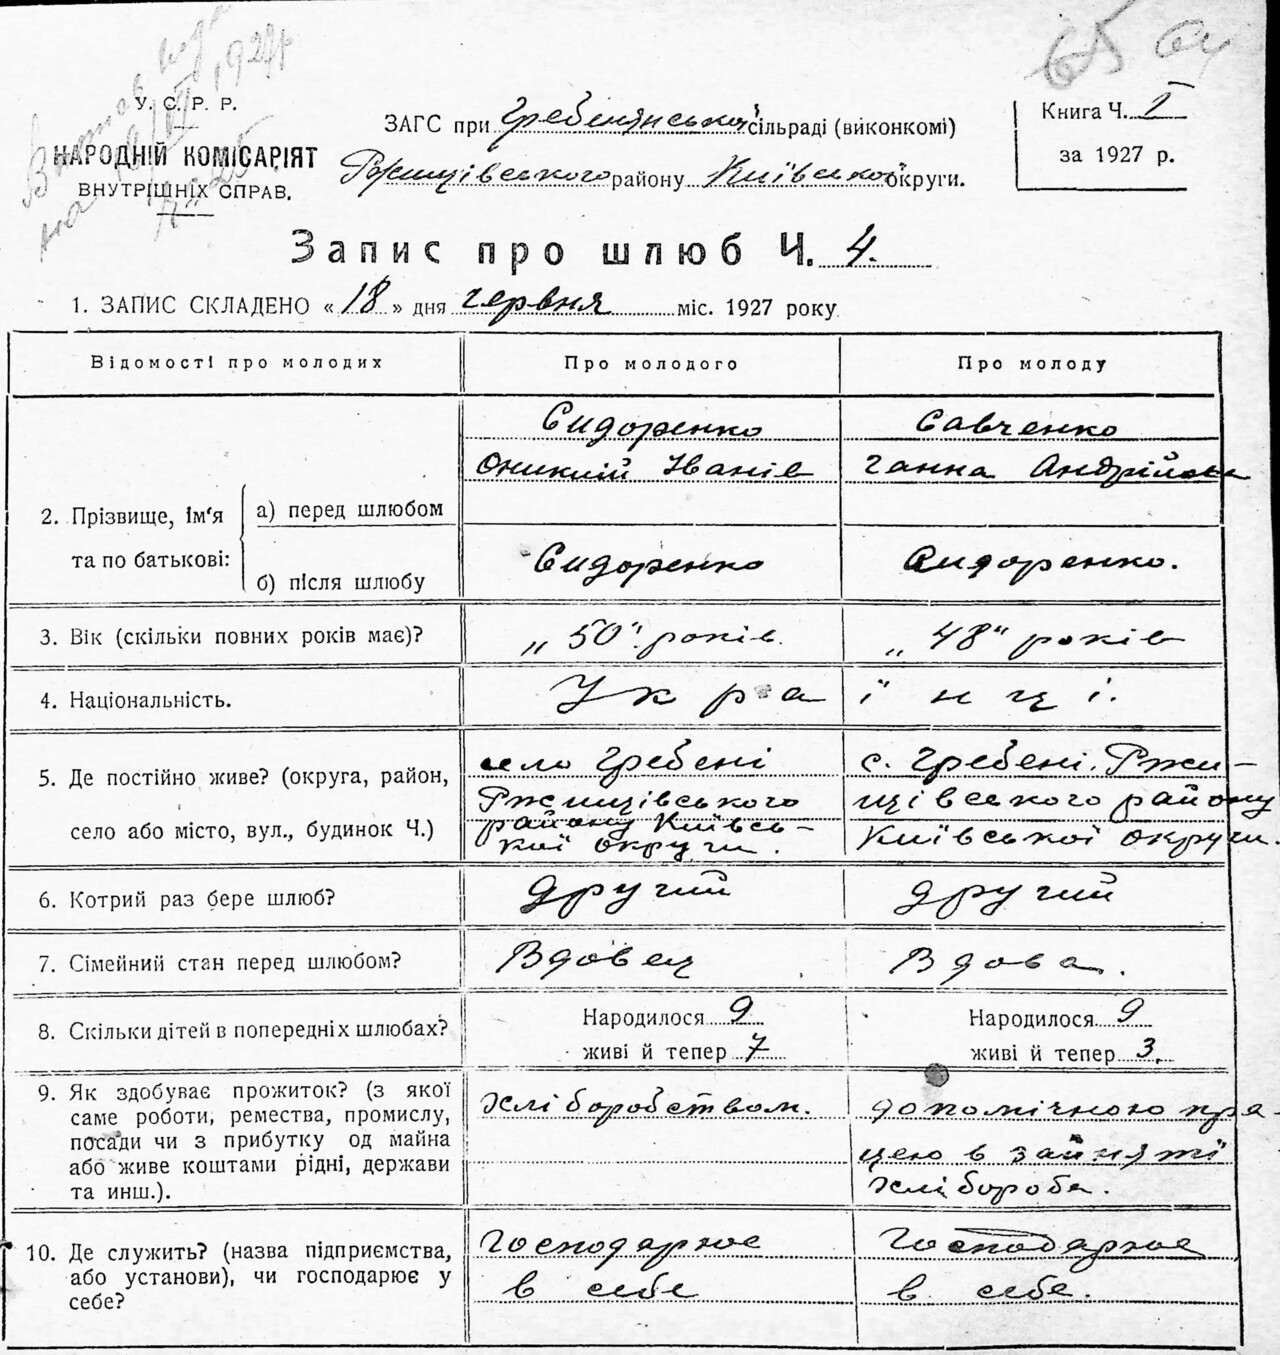 65 64
У. С. Р. Р.
НАРОДНІЙ КОМІСАРІЯТ
ВНУТРІШНІХ СПРАВ.
ЗАГС при Гребенянській сільраді (виконкомі)
Ржищівського району Київської округи.
Книга Ч. I
за 1927 р.
Запис про шлюб Ч. 4.
1. ЗАПИС СКЛАДЕНО «18» дня червня міс. 1927 року
Відомості про молодих
Про молодого
Про молоду
2. Прізвище, ім'я та по батькові:
а) перед шлюбом
Сидоренко
Оникий Іванів
Савченко
Ганна Андрійовн
б) після шлюбу
Сидоренко
Сидоренко.
3. Вік (скільки повних років має)?
„50" років.
„48" років
4. Національність.
Українці.
5. Де постійно живе? (округа, район,
село або місто, вул., будинок Ч.)
село Гребені
Ржищівського
району Київсь-
кої округи.
с. Гребені. Ржи-
щівського району
Київської округи.
6. Котрий раз бере шлюб?
другий
другий
7. Сімейний стан перед шлюбом?
Вдовец
Вдова.
8. Скільки дітей в попередніх шлюбах?
Народилося 9
живі й тепер 7
Народилося 9
живі й тепер 3.
9. Як здобуває прожиток? (з якої
саме роботи, ремества, промислу,
посади чи з прибутку од майна
або живе коштами рідні, держави
та инш.).
Хліборобством.
допомічною пра-
цею в зайняті
хлібороба.
10. Де служить? (назва підприємства,
або установи), чи господарює у
себе?
Господарює
в себе
Господарює
в себе.